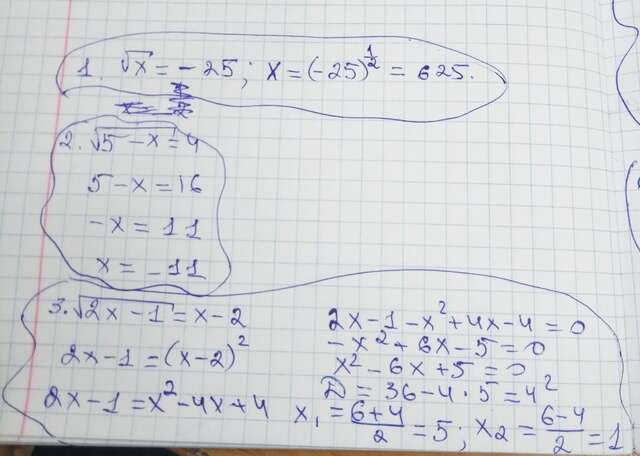 1. √x = - 25; x = (-25)^1/2 = 625.
2. √5 - x = 4
5 - x = 16
-x = 11
x = -11
3. √2x - 1 = x - 2
2x - 1 = (x - 2)²
2x - 1 = x² - 4x + 4
2x - 1 - x² + 4x - 4 = 0
-x² + 6x - 5 = 0
x² - 6x + 5 = 0
D = 36 - 4 · 5 = 4²
x₁ = 6+4/2 = 5; x₂ = 6-4/2 = 1